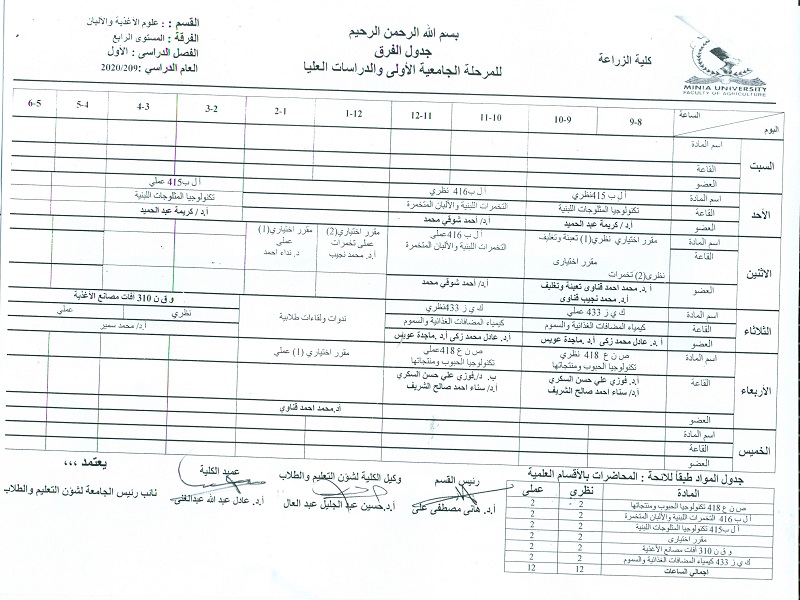 بسم الله الرحمن الرحيم
جدول الفرق
للمرحلة الجامعية الأولى والدراسات العليا
كلية الزراعة
MINIA UNIVERSITY
FACULTY OF AGRICULTURE
القسم : : علوم الاغذية والالبان
الفرقة : المستوى الرابع
الفصل الدراسى : الأول
العام الدراسي :2020/209
الساعة
اليوم
9-8
10-9
11-10
12-11
1-12
2-1
3-2
4-3
5-4
6-5
السبت
اسم المادة
القاعة
العضو
الأحد
اسم المادة
القاعة
العضو
أ ل ب415 نظري
تكنولوجيا المثلوجات اللبنية
أ.د/ كريمة عبد الحميد
أ ل ب416 نظري
التخمرات اللبنية والألبان المتخمرة
أ.د/ احمد شوقي محمد
أ ل ب415 عملي
تكنولوجيا المثلوجات اللبنية
أ.د/ كريمة عبد الحميد
الاثنين
اسم المادة
القاعة
العضو
مقرر اختياري نظري(1) تعبئة وتغليف
مقرر اختيارى
نظري(2) تخمرات
أ .د. محمد احمد قناوى تعبئة وتغليف
أ.د. محمد نجيب قناوى
أ ل ب 416عملى
التخمرات اللبنية والألبان المتخمرة
أ.د/ احمد شوقي محمد
مقرر اختياري(2)
عملى تخمرات
أ.د. محمد نجيب
مقرر اختياري(1)
عملى
د. نداء احمد
الثلاثاء
اسم المادة
القاعة
العضو
ك ي ز 433 عملي
كيمياء المضافات الغذائية والسموم
أ .د. عادل محمد زكى أ.د. ماجدة عويس
ك ي ز 433نظري
كيمياء المضافات الغذائية والسموم
أ.د. عادل محمد زكى أ.د. ماجدة عويس
ندوات ولقاءات طلابية
و ق ن 310 آفات مصانع الأغذية
نظري
عملى
أ.د/ محمد سمير
الأربعاء
اسم المادة
القاعة
العضو
ص ن ع 418 نظري
تكنولوجيا الحبوب ومنتجاتها
أ.د. فوزي علي حسن السكري
أ.د/ سناء احمد صالح الشريف
ص ن ع 418عملي
تكنولوجيا الحبوب ومنتجاتها
ب. د/فوزي علي حسن السكري
د/ سناء احمد صالح الشريف
مقرر اختياري (1) عملي
أ.د.محمد احمد قناوي
الخميس
اسم المادة
القاعة
العضو
جدول المواد طبقاً للائحة : المحاضرات بالأقسام العلمية
المادة نظرى عملى
ص ن ع 418 تكنولوجيا الحبوب ومنتجاتها 2 2
أ ل ب 416 التخمرات اللبنية والألبان المتخمرة 2 2
أ ل ب415 تكنولوجيا المثلوجات اللبنية 2 2
مقرر اختيارى 2 2
و ق ن 310 آفات مصانع الأغذية 2 2
ك ي ز 433 كيمياء المضافات الغذائية والسموم 2 2
اجمالي الساعات 12 12
رئيس القسم
أ.د. هانى مصطفى على
وكيل الكلية لشؤن التعليم والطلاب
أ.د.حسين عبد الجليل عبد العال
عميد الكلية
أ.د. عادل عبد الله عبدالغنى
يعتمد ،،،
نائب رئيس الجامعة لشؤن التعليم والطلاب